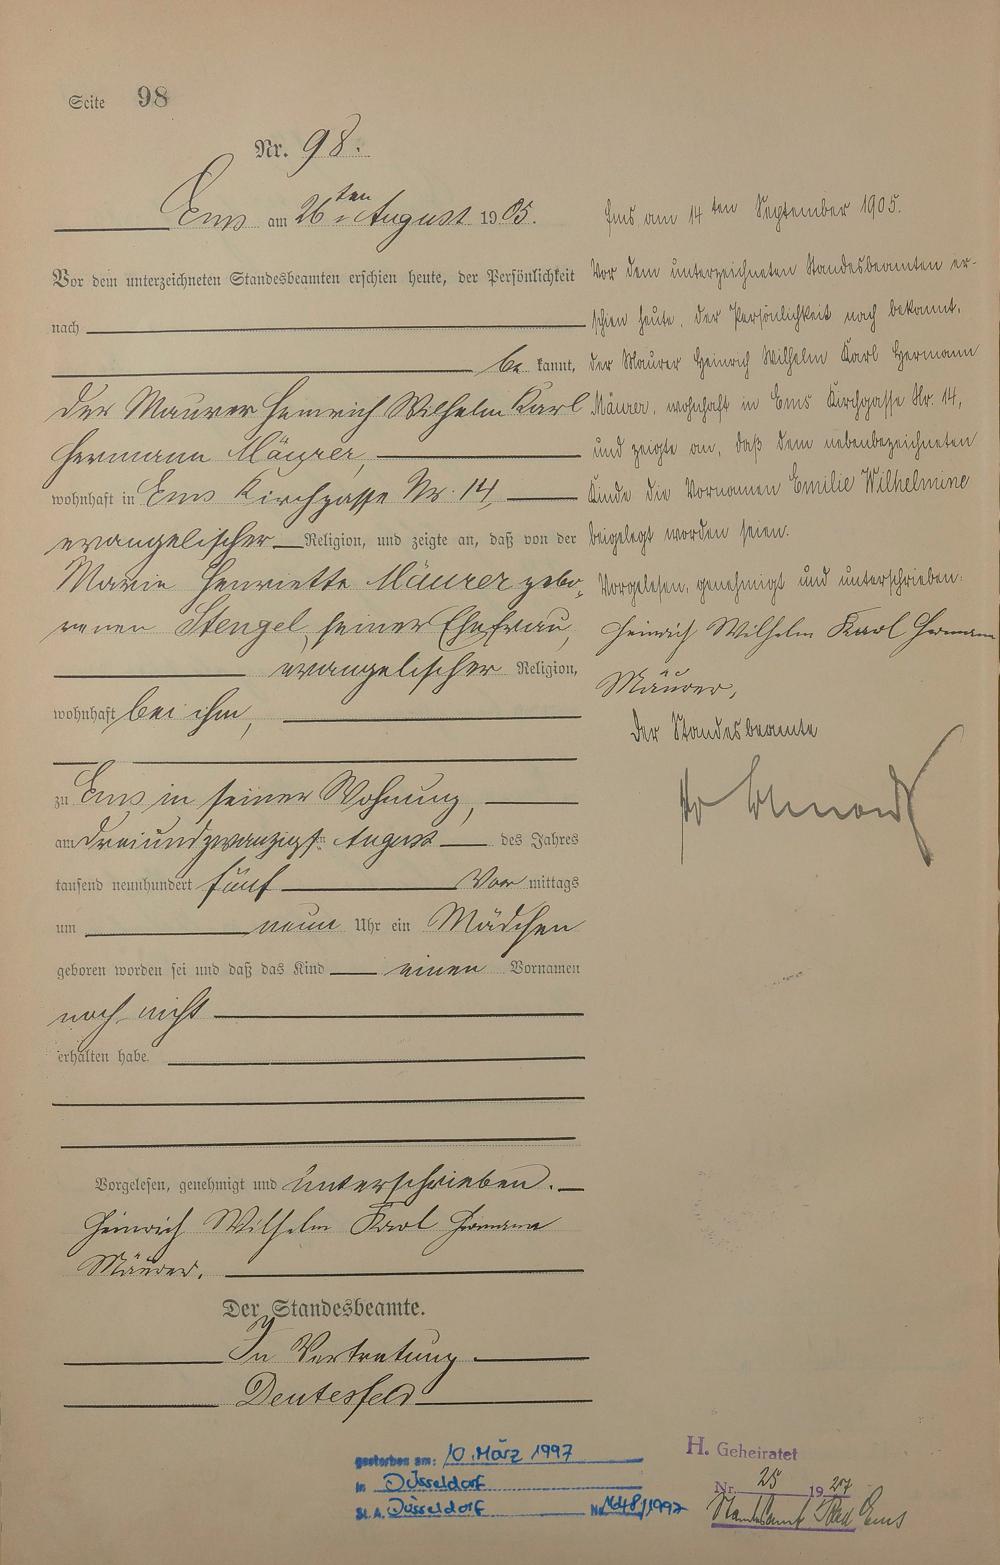 Seite 98
Nr. 98.
Ems am 26ten August 1905.
Vor dem unterzeichneten Standesbeamten erschien heute, der Persönlichkeit
nach
be kannt,
der Maurer Heinrich Wilhelm Karl
Hermann Mäurer,
wohnhaft in Ems Kirchgasse Nr. 14,
evangelischer Religion, und zeigte an, daß von der
Marie Henriette Mäurer gebo-
renen Stengel, seiner Ehefrau,
evangelischer Religion,
wohnhaft bei ihm,
zu Ems in seiner Wohnung,
am dreiundzwanzigsten August des Jahres
tausend neunhundert fünf Vor mittags
um neun Uhr ein Mädchen
geboren worden sei und daß das Kind einen Vornamen
noch nicht
erhalten habe.
Vorgelesen, genehmigt und unterschrieben.
Heinrich Wilhelm Karl Hermann
Mäurer.
Der Standesbeamte.
In Vertretung
Deutesfeld
Ems am 14ten September 1905.
Vor dem unterzeichneten Standesbeamten er-
schien heute, der Persönlichkeit nach bekannt,
der Maurer Heinrich Wilhelm Karl Hermann
Mäurer, wohnhaft in Ems Kirchgasse Nr. 14,
und zeigte an, daß dem nebenbezeichneten
Kinde die Vornamen Emilie Wilhelmine
beigelegt worden seien.
Vorgelesen, genehmigt und unterschrieben:
Heinrich Wilhelm Karl Hermann
Mäurer,
Der Standesbeamte
gestorben am: 10. März 1997
in Düsseldorf
St. A. Düsseldorf Nr. 1997
H. Geheiratet
Nr. 25 1927
Standesamt Bad Ems